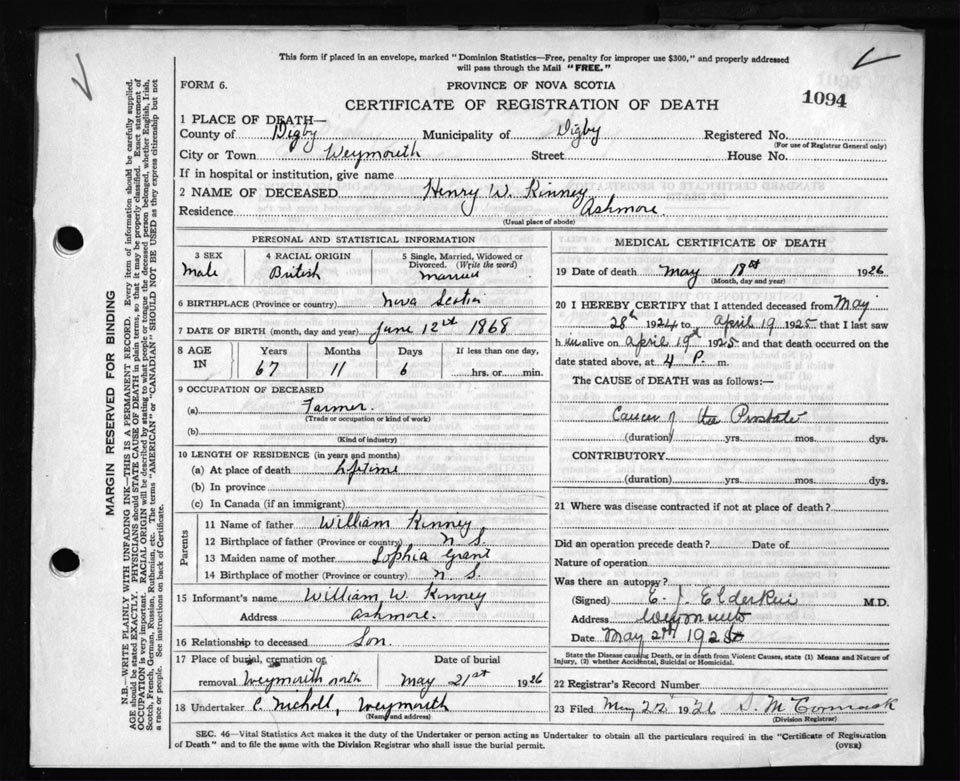 This form if placed in an envelope, marked "Dominion Statistics—Free, penalty for improper use $300," and properly addressed
will pass through the Mail "FREE."
FORM 6.
PROVINCE OF NOVA SCOTIA
CERTIFICATE OF REGISTRATION OF DEATH
1094
1 PLACE OF DEATH—
County of Digby Municipality of Digby Registered No.
(For use of Registrar General only)
City or Town Weymouth Street House No.
If in hospital or institution, give name
2 NAME OF DECEASED Henry W. Kinney
Residence Ashmore.
(Usual place of abode)
PERSONAL AND STATISTICAL INFORMATION
3 SEX 4 RACIAL ORIGIN 5 Single, Married, Widowed or Divorced. (Write the word)
Male British Married
6 BIRTHPLACE (Province or country) Nova Scotia
7 DATE OF BIRTH (month, day and year) June 12th 1868
8 AGE IN Years Months Days If less than one day,
67 11 6 hrs. or min.
9 OCCUPATION OF DECEASED
(a) Farmer.
(Trade or occupation or kind of work)
(b)
(Kind of industry)
10 LENGTH OF RESIDENCE (in years and months)
(a) At place of death Lifetime
(b) In province
(c) In Canada (if an immigrant)
Parents
11 Name of father William Kinney
12 Birthplace of father (Province or country) N S
13 Maiden name of mother Sophia Grant
14 Birthplace of mother (Province or country) N S.
15 Informant's name William W. Kinney
Address Ashmore.
16 Relationship to deceased Son.
17 Place of burial, cremation or removal Weymouth North
Date of burial May 21st 1926
18 Undertaker C. Nicholl, Weymouth
(Name and address)
MEDICAL CERTIFICATE OF DEATH
19 Date of death May 18st 1926
(Month, day and year)
20 I HEREBY CERTIFY that I attended deceased from May
28th 1924 to April 19 1925 that I last saw
him alive on April 19th 1925 and that death occurred on the
date stated above, at 4 P. m.
The CAUSE OF DEATH was as follows:—
Cancer of the Prostate
(duration) yrs. mos. dys.
CONTRIBUTORY
(duration) yrs. mos. dys.
21 Where was disease contracted if not at place of death?
Did an operation precede death? Date of
Nature of operation
Was there an autopsy?
(Signed) E. J. Elderkin M.D.
Address Weymouth
Date May 21st
State the Disease causing Death, or in death from Violent Causes, state (1) Means and Nature of
Injury, (2) whether Accidental, Suicidal or Homicidal.
22 Registrar's Record Number
23 Filed May 22 1926 D. McCormack
(Division Registrar)
SEC. 46—Vital Statistics Act makes it the duty of the Undertaker or person acting as Undertaker to obtain all the particulars required in the "Certificate of Registration
of Death" and to file the same with the Division Registrar who shall issue the burial permit.
(OVER)
MARGIN RESERVED FOR BINDING
N.B.—WRITE PLAINLY WITH UNFADING INK—THIS IS A PERMANENT RECORD. Every item of information should be carefully supplied.
AGE should be stated EXACTLY. PHYSICIANS should STATE CAUSE OF DEATH in plain terms, so that it may be properly classified. Exact statement of
OCCUPATION is very important. RACIAL ORIGIN will be described by stating to what people or tongue the deceased person belonged, whether English, Irish,
Scotch, French, German, Russian, Ruthenian, etc. The terms "AMERICAN" or "CANADIAN" SHOULD NOT BE USED as they express citizenship but not
a race or people. See instructions on back of Certificate.